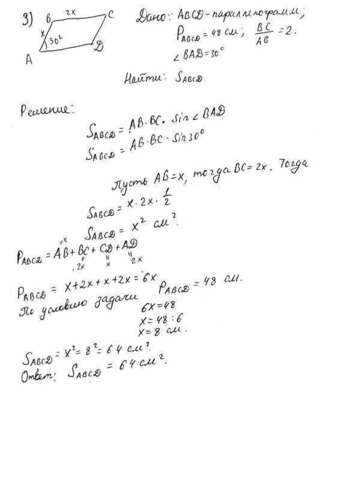 3)
B 2x C
x
30°
A D
Дано: ABCD - параллелограмм;
P_ABCD = 48 см; BC/AB = 2.
∠BAD = 30°
Найти: S_ABCD.
Решение:
S_ABCD = AB · BC · sin ∠BAD
S_ABCD = AB · BC · sin 30°
Пусть AB = x, тогда BC = 2x. Тогда
S_ABCD = x · 2x · 1/2
S_ABCD = x² см².
P_ABCD = AB + BC + CD + AD
x 2x x 2x
P_ABCD = x + 2x + x + 2x = 6x
По условию задачи P_ABCD = 48 см.
6x = 48
x = 48 : 6
x = 8 см.
S_ABCD = x² = 8² = 64 см².
Ответ: S_ABCD = 64 см².